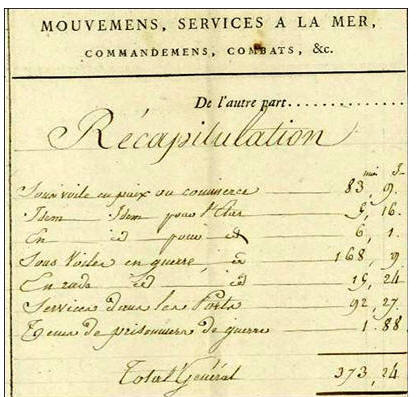 MOUVEMENS, SERVICES A LA MER,
COMMANDEMENS, COMBATS, &c.
De l'autre part
Récapitulation
mois J.
Sous voile en paix ou commerce 83, 9.
Idem Idem pour l'Etat 16.
En id pour id 6, 1.
Sous Voiles en guerre, id 168, 9
En rade id id 24
Services dans les Ports 92, 27.
Tems de prisonniers de guerre 1. 88
Total Général 373, 24